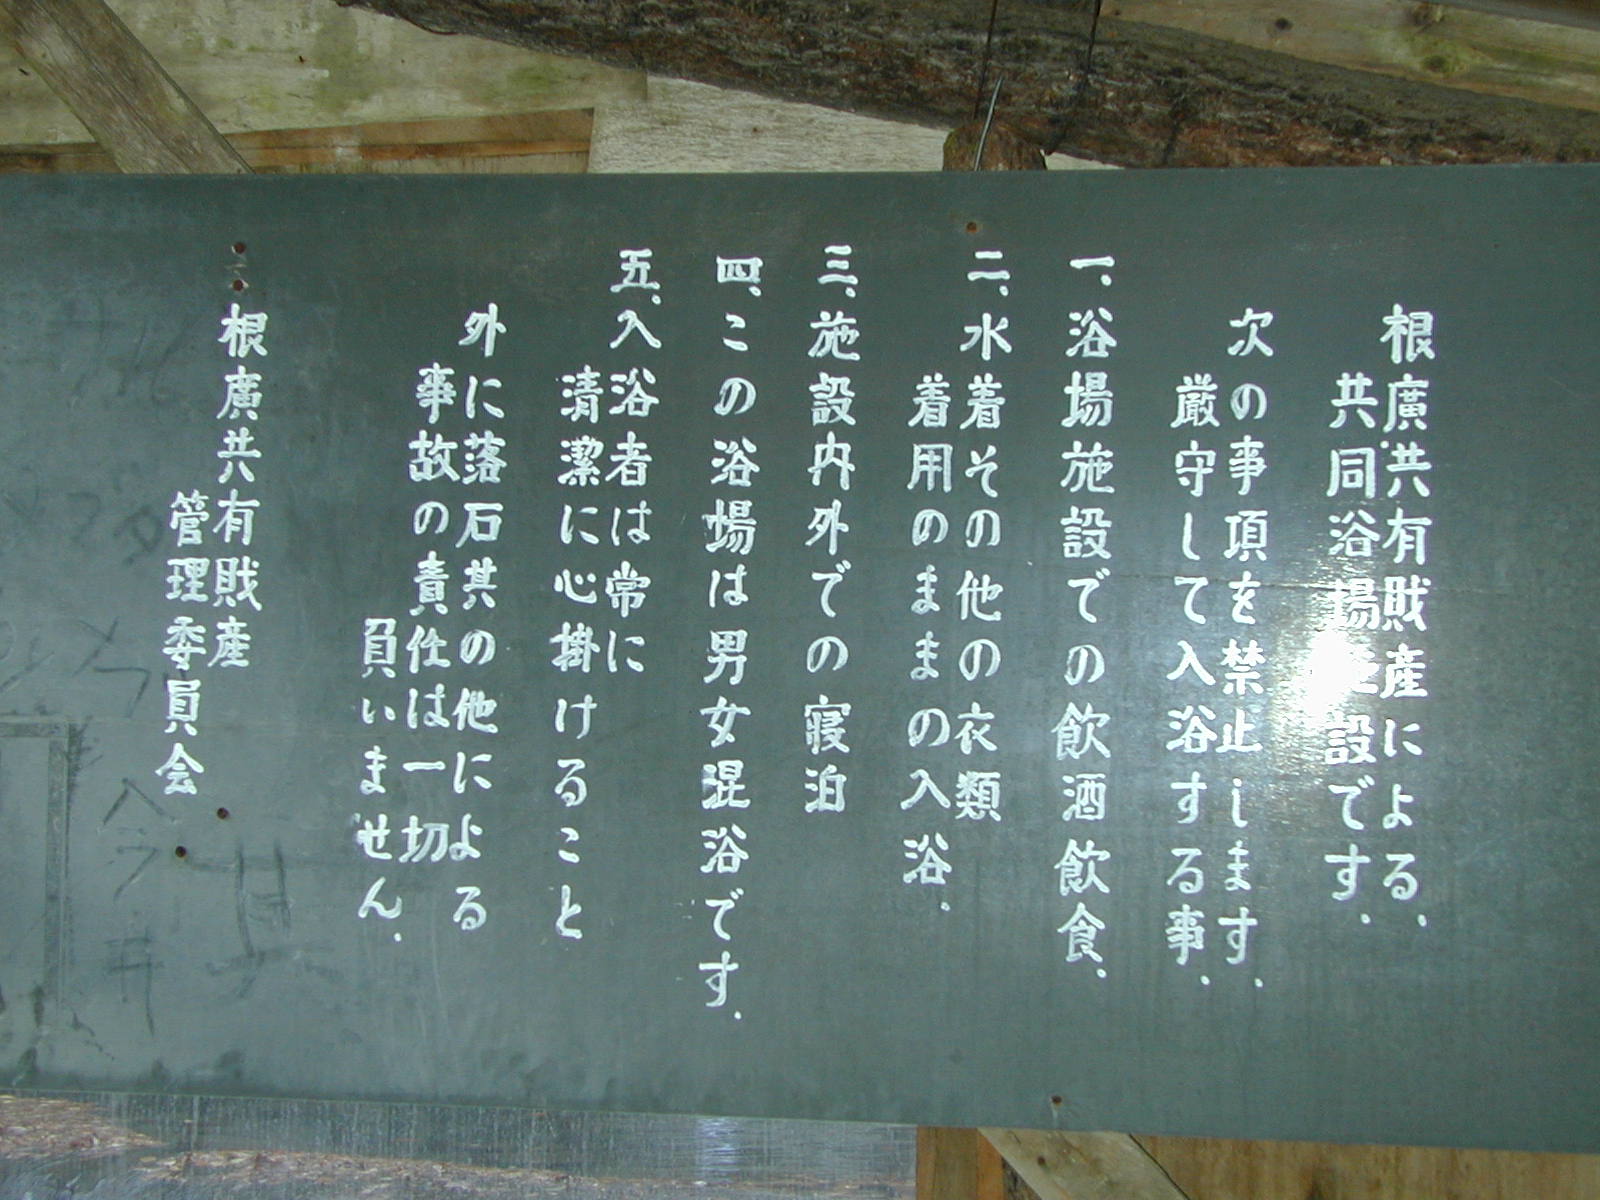 根廣共有財産による、
共同浴場 設です.
次の事項を禁止します.
厳守して入浴する事.
一、浴場施設での飲酒飲食.
二、水着その他の衣類
着用のままの入浴.
三、施設内外での寝泊
四、この浴場は男女混浴です.
五、入浴者は常に
清潔に心掛けること
外に落石其の他による
事故の責任は一切
負いません.
根廣共有財産
管理委員会